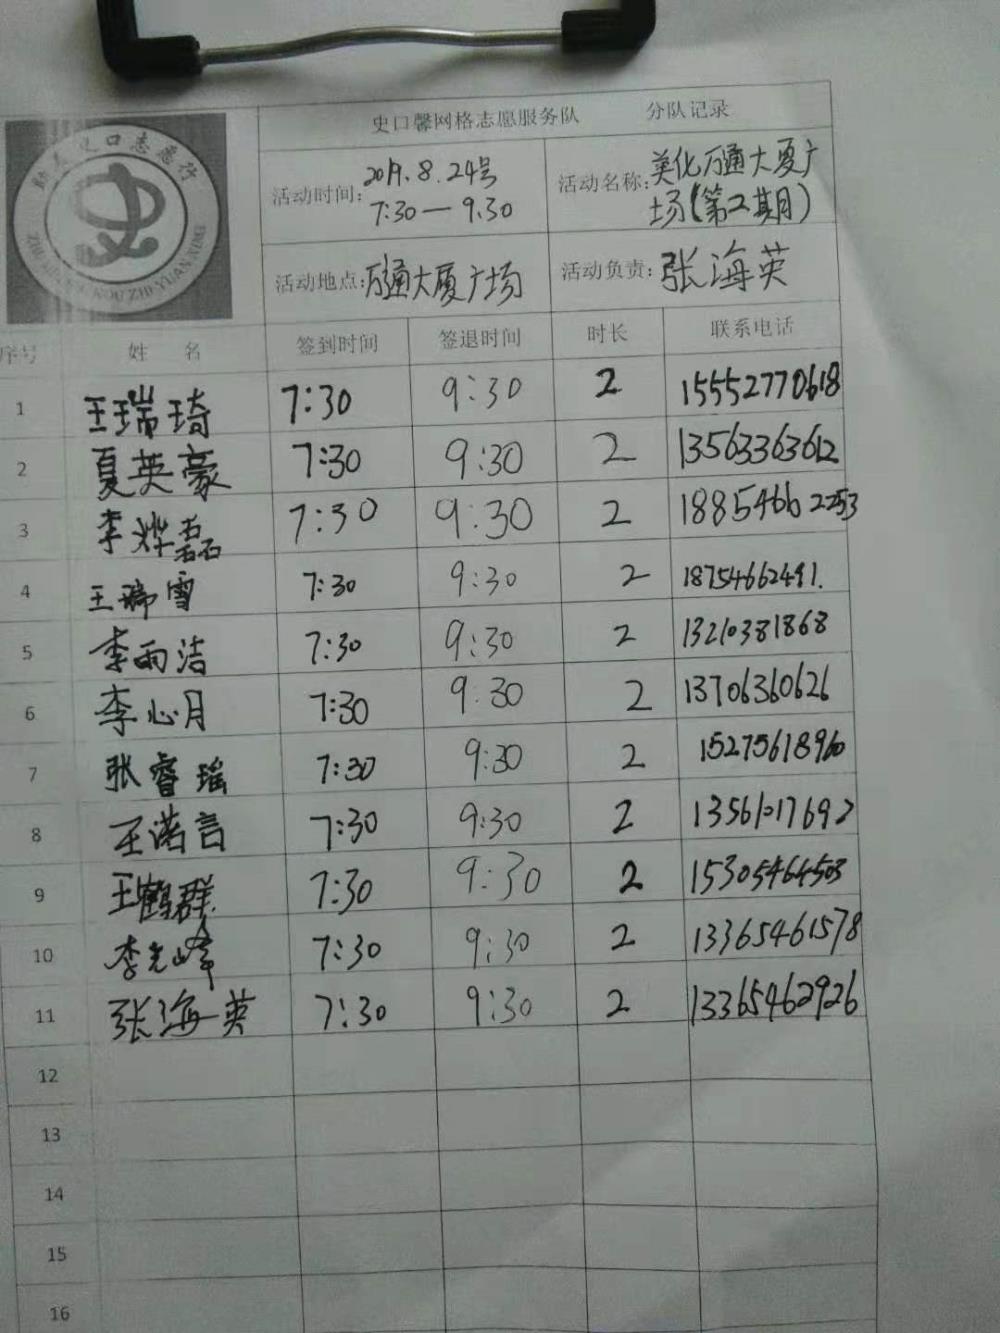 史口馨网格志愿服务队 分队记录
活动时间: 2019.8.24号
7:30—9.30
活动名称: 美化万通大厦广
场(第二期)
活动地点: 万通大厦广场 活动负责: 张海英
序号 姓 名 签到时间 签退时间 时长 联系电话
1 王瑞琦 7:30 9:30 2 15552770618
2 夏英豪 7:30 9:30 2 13563363612
3 李烨磊 7:30 9:30 2 18854662253
4 王瑞雪 7:30 9:30 2 18754662491.
5 李雨洁 7:30 9:30 2 13210381868
6 李心月 7:30 9:30 2 13706360626
7 张睿瑶 7:30 9:30 2 15275618960
8 王诺言 7:30 9:30 2 13561017692
9 王鹤群 7:30 9:30 2 15305464503
10 李光峰 7:30 9:30 2 13365461578
11 张海英 7:30 9:30 2 13365462926
12
13
14
15
16